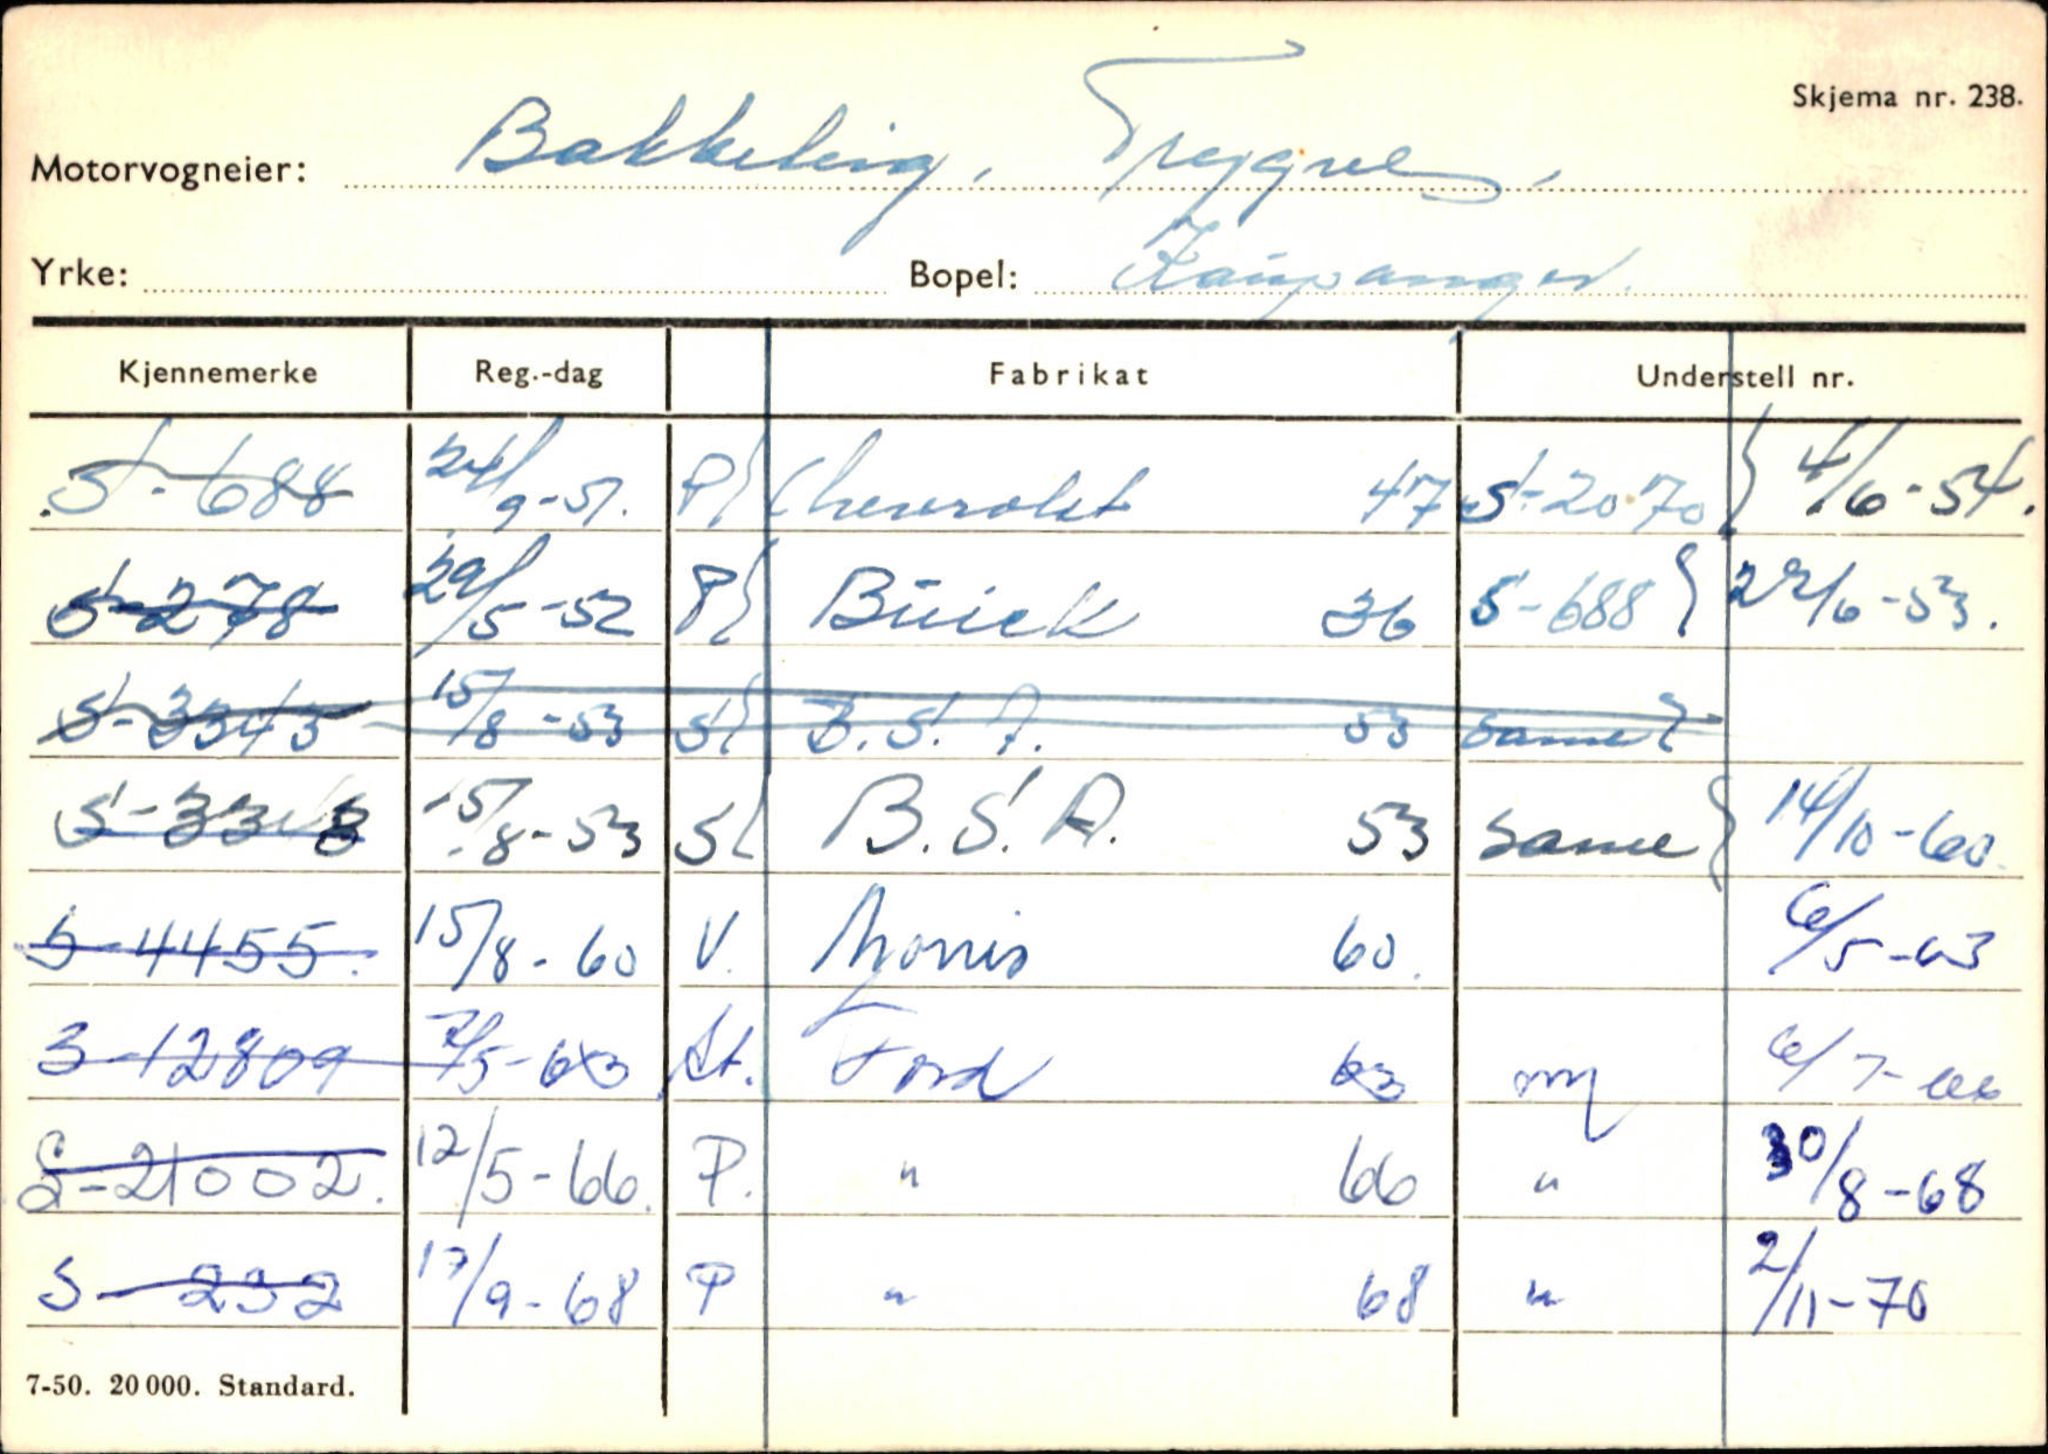 Skjema nr. 238.
Motorvogneier: Bakkeleig, Tryggve,
Yrke: Bopel: Kaupanger.
Kjennemerke Reg.-dag Fabrikat Understell nr.
S-688 24/9-51. P Chevrolet 47 S-2070 4/6-54.
S-278 29/5-52 P Buick 36 S-688 22/6-53.
S-3343 15/8-53 S B.S.A. 53 Same
S-3318 15/8-53 S B.S.A. 53 Same 14/10-60
S-4455. 15/8-60 V. Morris 60. 6/5-63
S-12809 7/5-63 St. Ford 63 ny 6/7-66
S-21002. 12/5-66. P. " 66 " 30/8-68
S-232 17/9-68 P " 68 " 2/11-70
7-50. 20 000. Standard.